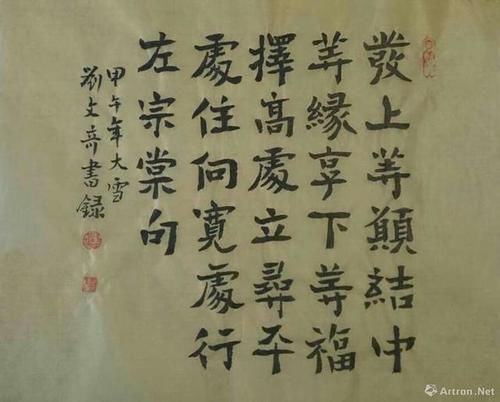 發上等願結中
等緣享下等福
擇高處立尋平
處住向寬處行
左宗棠句
甲午年大雪
劉文奇書録
Artron.Net